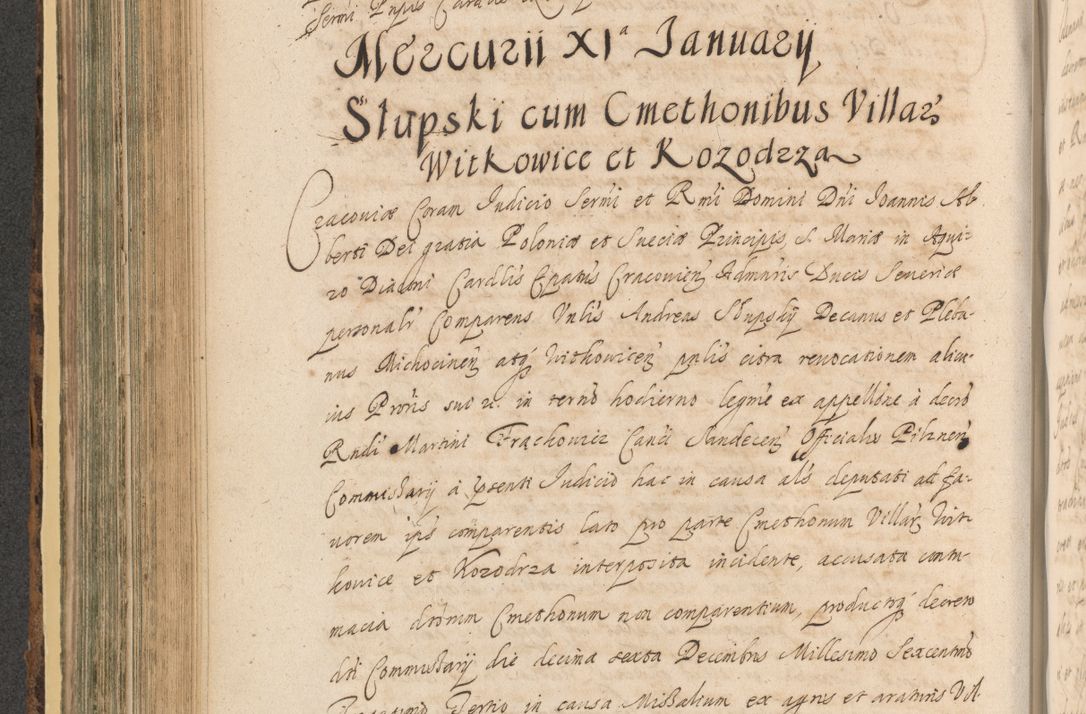 Mercurii XIa Januarij
Słupski cum Cmethonibus Villar
Witkowice et Kozodrza
Cracoviæ Coram Judicio Sermi et Rmi Domini Dni Joannis Al-
berti Dei gratia Poloniæ et Sueciæ Principis, S. Mariæ in Aqui-
ro Diaconi Cardlis Epatus Cracovien Admnris Ducis Severiæ
personalr Comparens Vnlis Andreas Słupskij Decanus et Pleba-
nus Michocinen atq Witkovicen pnlis citra revocationem alicu-
ius Proris sui n. in termo hodierno legme ex appellone à decro
Rndi Martini Frachowicz Canci Sandecen Officialis Pilznen
Commissarij à psenti Judicio hac in causa als deputati ad fa-
uorem ipis comparentis lato pro parte Cmethonum Villar Wit-
kovice et Kozodrza interposita incidente, accusata contu-
macia dtorum Cmethonum non comparentium, productoq decreto
dti Commissarij die decima sexta Decembris Millesimo Sexcentmo
Tertio in causa Missalium ex agris et araturis Vil-